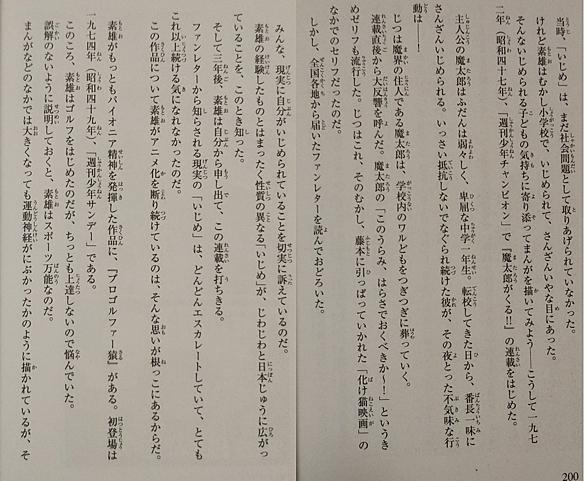 当時、「いじめ」は、まだ社会問題として取りあげられていなかった。
けれど素雄はむかし小学校で、いじめられて、さんざんいやな目にあった。
そんないじめられる子どもの気持ちに寄り添ってまんがを描いてみよう――こうして一九七
二年（昭和四十七年）、「週刊少年チャンピオン」で『魔太郎がくる!!』の連載をはじめた。
主人公の魔太郎はふだんは弱々しく、卑屈な中学一年生。転校してきた日から、番長一味に
さんざんいじめられる。いっさい抵抗しないでなぐられ続けた彼が、その夜とった不気味な行
動は――！
じつは魔界の住人である魔太郎は、学校内のワルどもをつぎつぎに葬っていく。
連載直後から大反響を呼んだ。魔太郎の「このうらみ、はらさでおくべきか～！」というき
めゼリフも流行した。じつはこれ、そのむかし、藤本に引っぱっていかれた「化け猫映画」の
なかでのセリフだったのだ。
しかし、全国各地から届いたファンレターを読んでおどろいた。
みんな、現実に自分がいじめられていることを切実に訴えているのだ。
素雄の経験したものとはまったく性質の異なる「いじめ」が、じわじわと日本じゅうに広がっ
ていることを、このとき知った。
そして三年後、素雄は自分から申し出て、この連載を打ちきる。
ファンレターから知らされる現実の「いじめ」は、どんどんエスカレートしていて、とても
これ以上続ける気になれなかったのだ。
この作品について素雄がアニメ化を断り続けているのは、そんな思いが根っこにあるからだ。
素雄がもっともパイオニア精神を発揮した作品に、『プロゴルファー猿』がある。初登場は
一九七四年（昭和四十九年）、「週刊少年サンデー」である。
このころ、素雄はゴルフをはじめたのだが、ちっとも上達しないので悩んでいた。
誤解のないように説明しておくと、素雄はスポーツ万能なのだ。
まんがなどのなかでは大きくなっても運動神経がにぶかったかのように描かれているが、そ
200